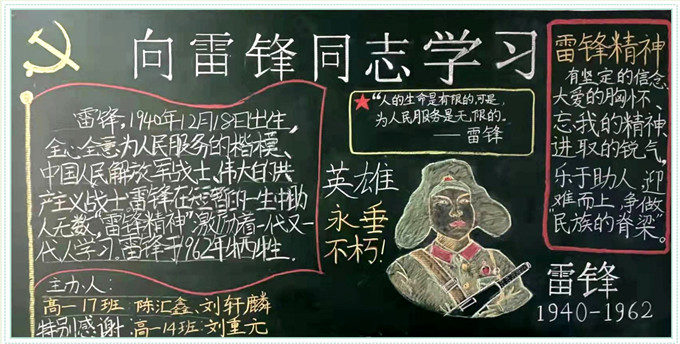 向雷锋同志学习
雷锋，1940年12月18日出生，
全心全意为人民服务的楷模、
中国人民解放军战士、伟大的共
产主义战士雷锋在短暂的一生中助
人无数，“雷锋精神”激励着一代又一
代人学习.雷锋于1962年牺牲.
主办人：
高一17班：陈汇鑫、刘轩麟
特别感谢：高一14班：刘重元
“人的生命是有限的，可是，
为人民服务是无限的。
——雷锋
英雄
永垂
不朽！
雷锋精神
有坚定的信念、
大爱的胸怀、
忘我的精神、
进取的锐气，
乐于助人，迎
难而上，争做
“民族的脊梁”。
雷锋
1940-1962